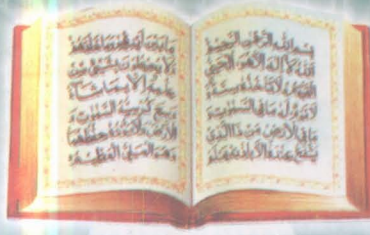 بسم الله الرحمن الرحيم
الله لا اله الا هو الحي
القيوم لا تاخذه سنة و
لا نوم له ما في السموت و
ما في الارض من ذا الذي
يشفع عنده الا باذنه يعلم
ما بين ايديهم وما خلفهم
ولا يحيطون بشيء من
علمه الا بما شاء
وسع كرسيه السموت و
الارض ولا يؤده حفظهما
وهو العلي العظيم